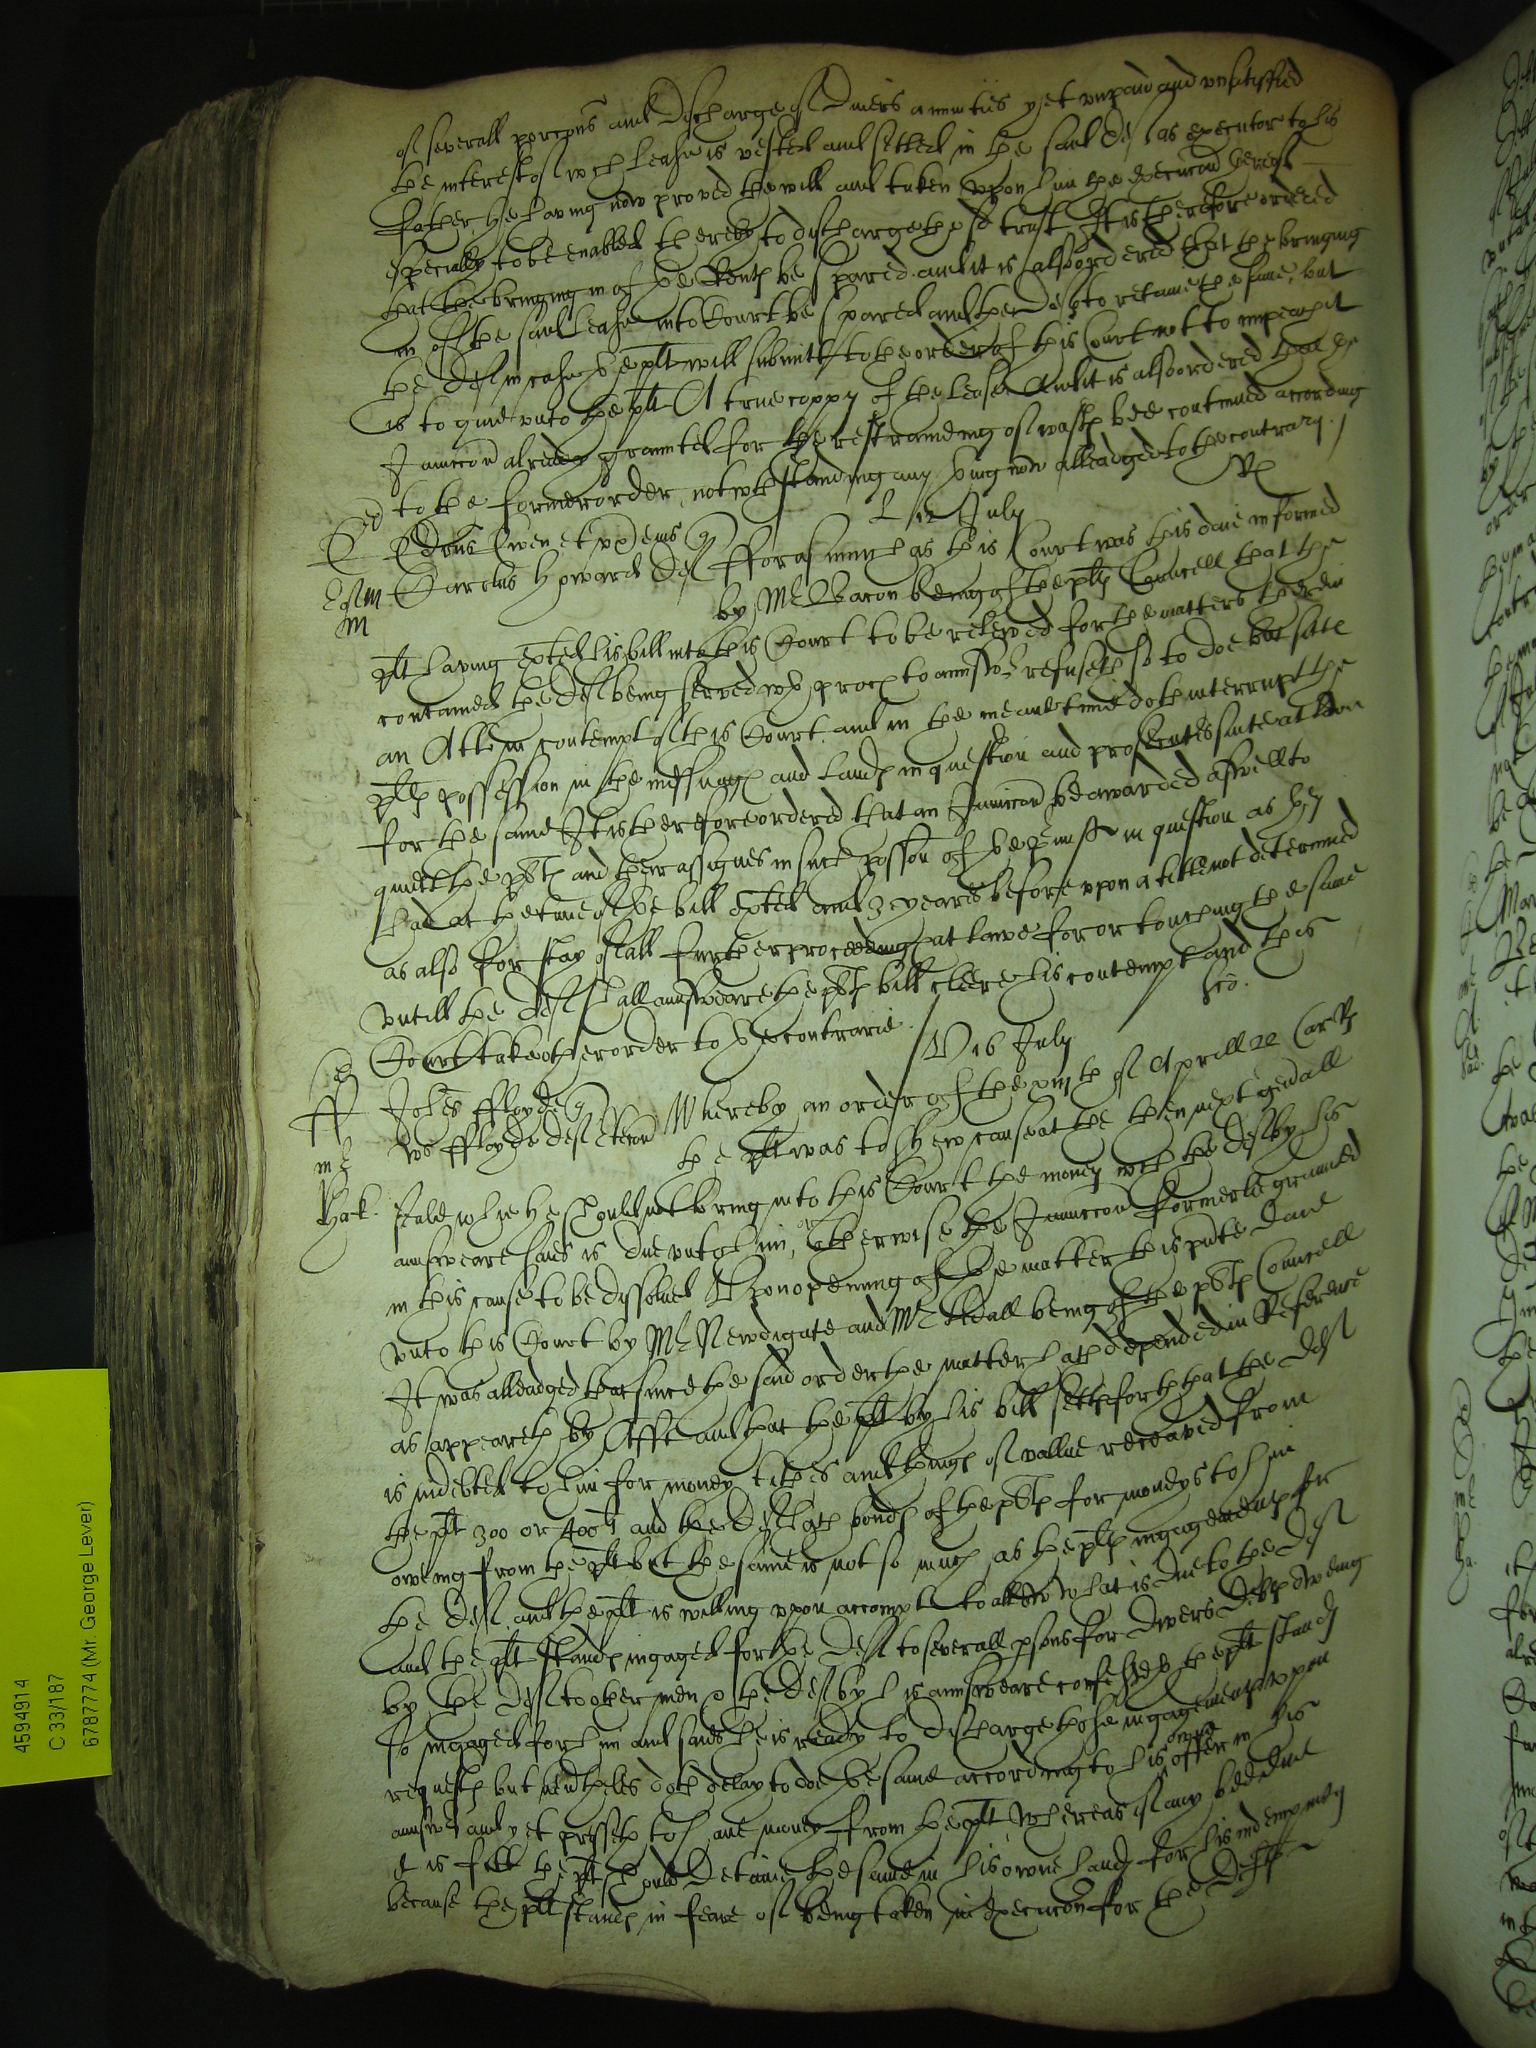 of severall porcons and discharge of divers annuities yet unpaid and unsatisfied
the interest of wch lease is vested and setled in the said deft as executor to his
father, he having now proved the will and taken upon him the execucon thereof
especially to be enabled thereby to discharge the sd trust It is therefore ordered
that the bringing in of the Rents be spared. and it is also ordered that the bringing
in of the said lease into Court be spared and the deft to retaine the same, but
the deft in case the plt will submitt to the order of this Court not to impeach it
is to give unto the plt A true coppy of the lease And it is also ordered that the
Iniunccon already graunted for the restraineing of wast bee contined according
to the former order, notwthstanding any thing now alleadged to the contrary. /
L 12 July
Edrus Owen et ux eius q
Howard deft fforasmuch as this Court was this daie informed
by Mr Bacon being of the plts Councell that the
plt having exhted his bill into this Court to be releived for the matters therein
conteined the deft being served wth proces to answer refuseth so to doe but sitts
an Attt in contempt of this Court and in the meane time doth interrupt the
plts possession in the messuage and lands in question and prosecutes suite at lawe
for the same It is therefore ordered that an Iniunccon be awarded aswell to
quiett the plts and their assignes in such posson of the premiss in question as they
had at the time of the bill exhted and 3 yeares before upon a title not determined
as also for stay of all further proceedings at lawe for or touching the same
untill the deft shall answeare the plts bill cleere his contempt and this
Court take other order to the contrarie. /
V 16 July
Johes ffloyde q
ffloyde deft Whereby an order of the of Aprill 22 Car Rs
the plt was to shew cause at the then next gen'all
Seale why he should not bring into this Court the money wch the deft by his
answeare saies is due unto him, or otherwise the Iniunccon formerlie graunted
in this cause to be dissolved Upon opening of the matter this pnte daie
unto this Court by Mr Newdigate and Mr being of the plts Councell
It was alleadged that since the said order the matter hath depended in Reference
as appeareth by Afft and that the plt by his bill setts forth that the deft
is indebted to him for money tithes and things of vallue receaved from
the plt 300 or 400l and the deft hath bonds of the plts for moneys to him
oweing from the plt but the same is not so much as the plts ingagements for
the deft and the plt is willing upon accompt to allow what is due to the deft
and the plt stands ingaged for the deft to severall psons for divers debts oweing
by the deft to other men & the deft by his answeare confesseth the plt stands
so ingaged for him and saies he is ready to discharge those ingagements upon
request but nevtheles doth delay to doe the same according to his owne offer in his
answer and yet presseth to have money from the plt Whereas if any bee due
it is fitt the plt should detaine the same in his owne hands for his indempnity
because the plt stands in feare of being taken in execucon for the defts
4594914
C 33/187
6787774 (Mr. George Lever)